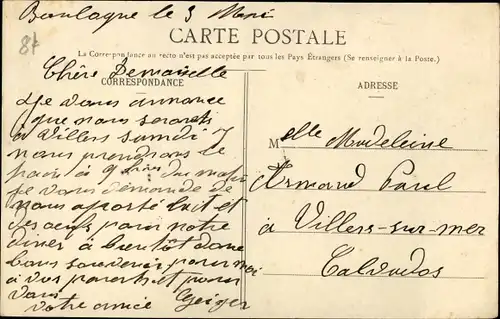 Boulogne le 3 Mai
87
CARTE POSTALE
La Correspondance au recto n'est pas acceptée par tous les Pays Étrangers (Se renseigner à la Poste.)
Chère Demoiselle
CORRESPONDANCE
ADRESSE
Je vous annonce
que nous serons
à Villers samdi 7
nous prendrons le
à 9 du matin
je vous demande de
nous aporté lait et
des oeufs pour notre
diner à bientôt donc
bons souvenirs pour moi
à vos parents et pour
vous
votre amie Geiger
Melle Madeleine
Armand Paul
à Villers-sur-mer
Calvados